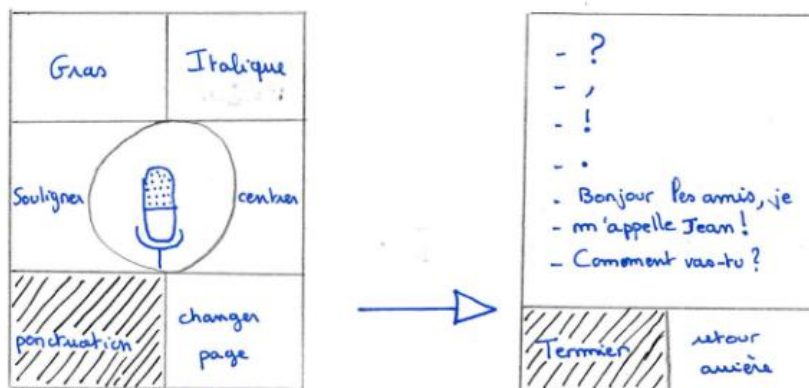 Gras
Italique
Souligner
centrer
ponctuation
changer
page
- ?
- ,
- !
- .
- Bonjour les amis, je
- m'appelle Jean !
- Comment vas-tu ?
Terminer
retour
arrière